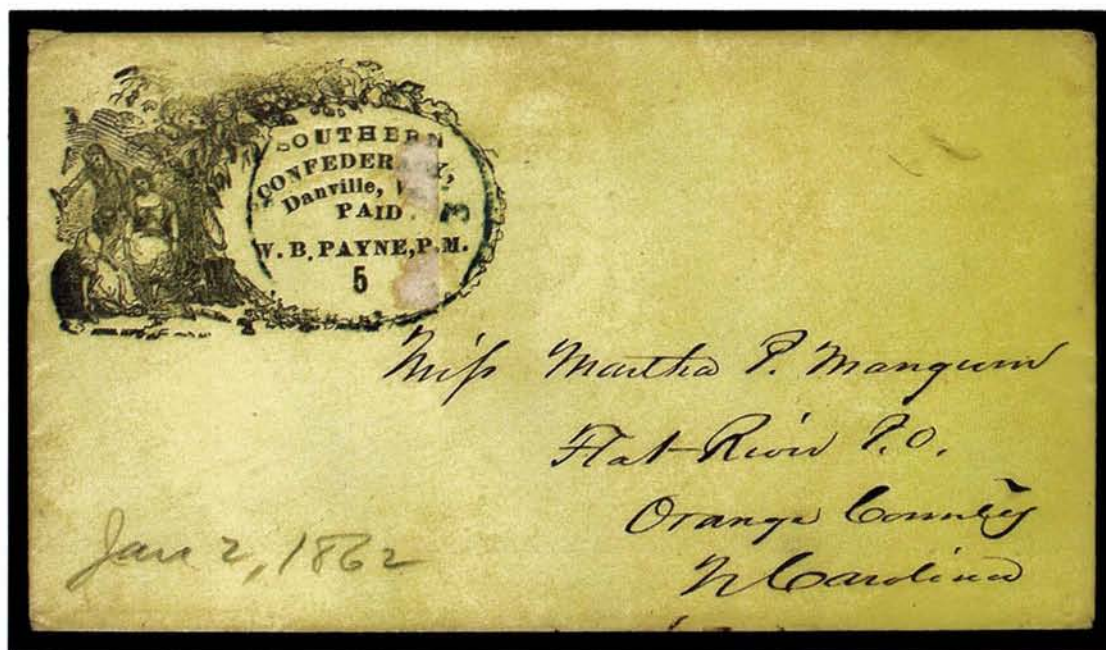 SOUTHERN
CONFEDER Y,
Danville, V
PAID
3
W. B. PAYNE, P. M.
5
Miſs Martha P. Mangum
Flat River P.O.
Orange County
N Carolina
Jan 2, 1862